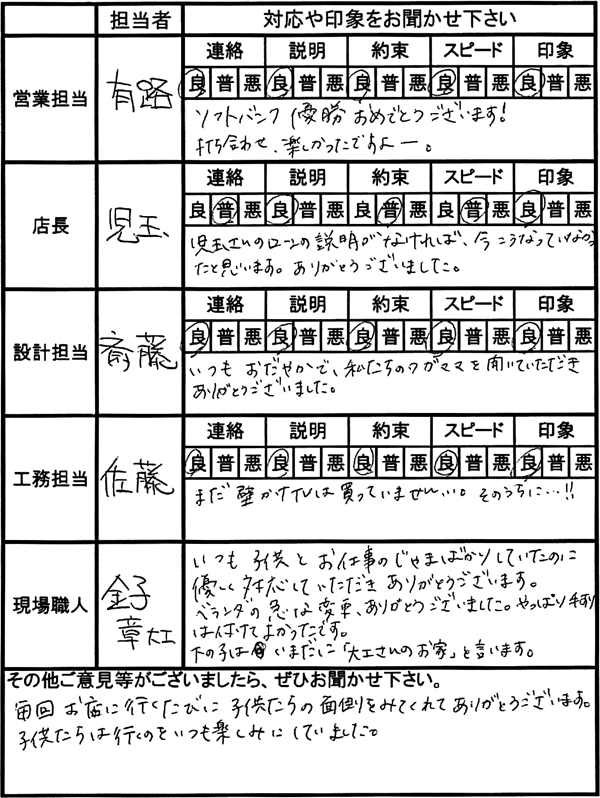 担当者 対応や印象をお聞かせ下さい
営業担当 有路
連絡 説明 約束 スピード 印象
良 普 悪 良 普 悪 良 普 悪 良 普 悪 良 普 悪
ソフトバンク優勝おめでとうございます!
打ち合わせ、楽しかったですよー。
店長 児玉
連絡 説明 約束 スピード 印象
良 普 悪 良 普 悪 良 普 悪 良 普 悪 良 普 悪
児玉さんのローンの説明がなければ、今こうなっていなかっ
たと思います。ありがとうございました。
設計担当 斎藤
連絡 説明 約束 スピード 印象
良 普 悪 良 普 悪 良 普 悪 良 普 悪 良 普 悪
いつもおだやかで、私たちのワガママを聞いていただき
ありがとうございました。
工務担当 佐藤
連絡 説明 約束 スピード 印象
良 普 悪 良 普 悪 良 普 悪 良 普 悪 良 普 悪
まだ壁かけTVは買っていません…。そのうちに…!!
現場職人 金子
章大工
いつも子供とお仕事のじゃまばかりしていたのに
優しく対応していただきありがとうございます。
ベランダの急な変更、ありがとうございました。やっぱり手すり
は付けてよかったです。
下の子はいまだに「大工さんのお家」と言います。
その他ご意見等がございましたら、ぜひお聞かせ下さい。
毎回お店に行くたびに子供たちの面倒をみてくれてありがとうございます。
子供たちは行くのをいつも楽しみにしていました。